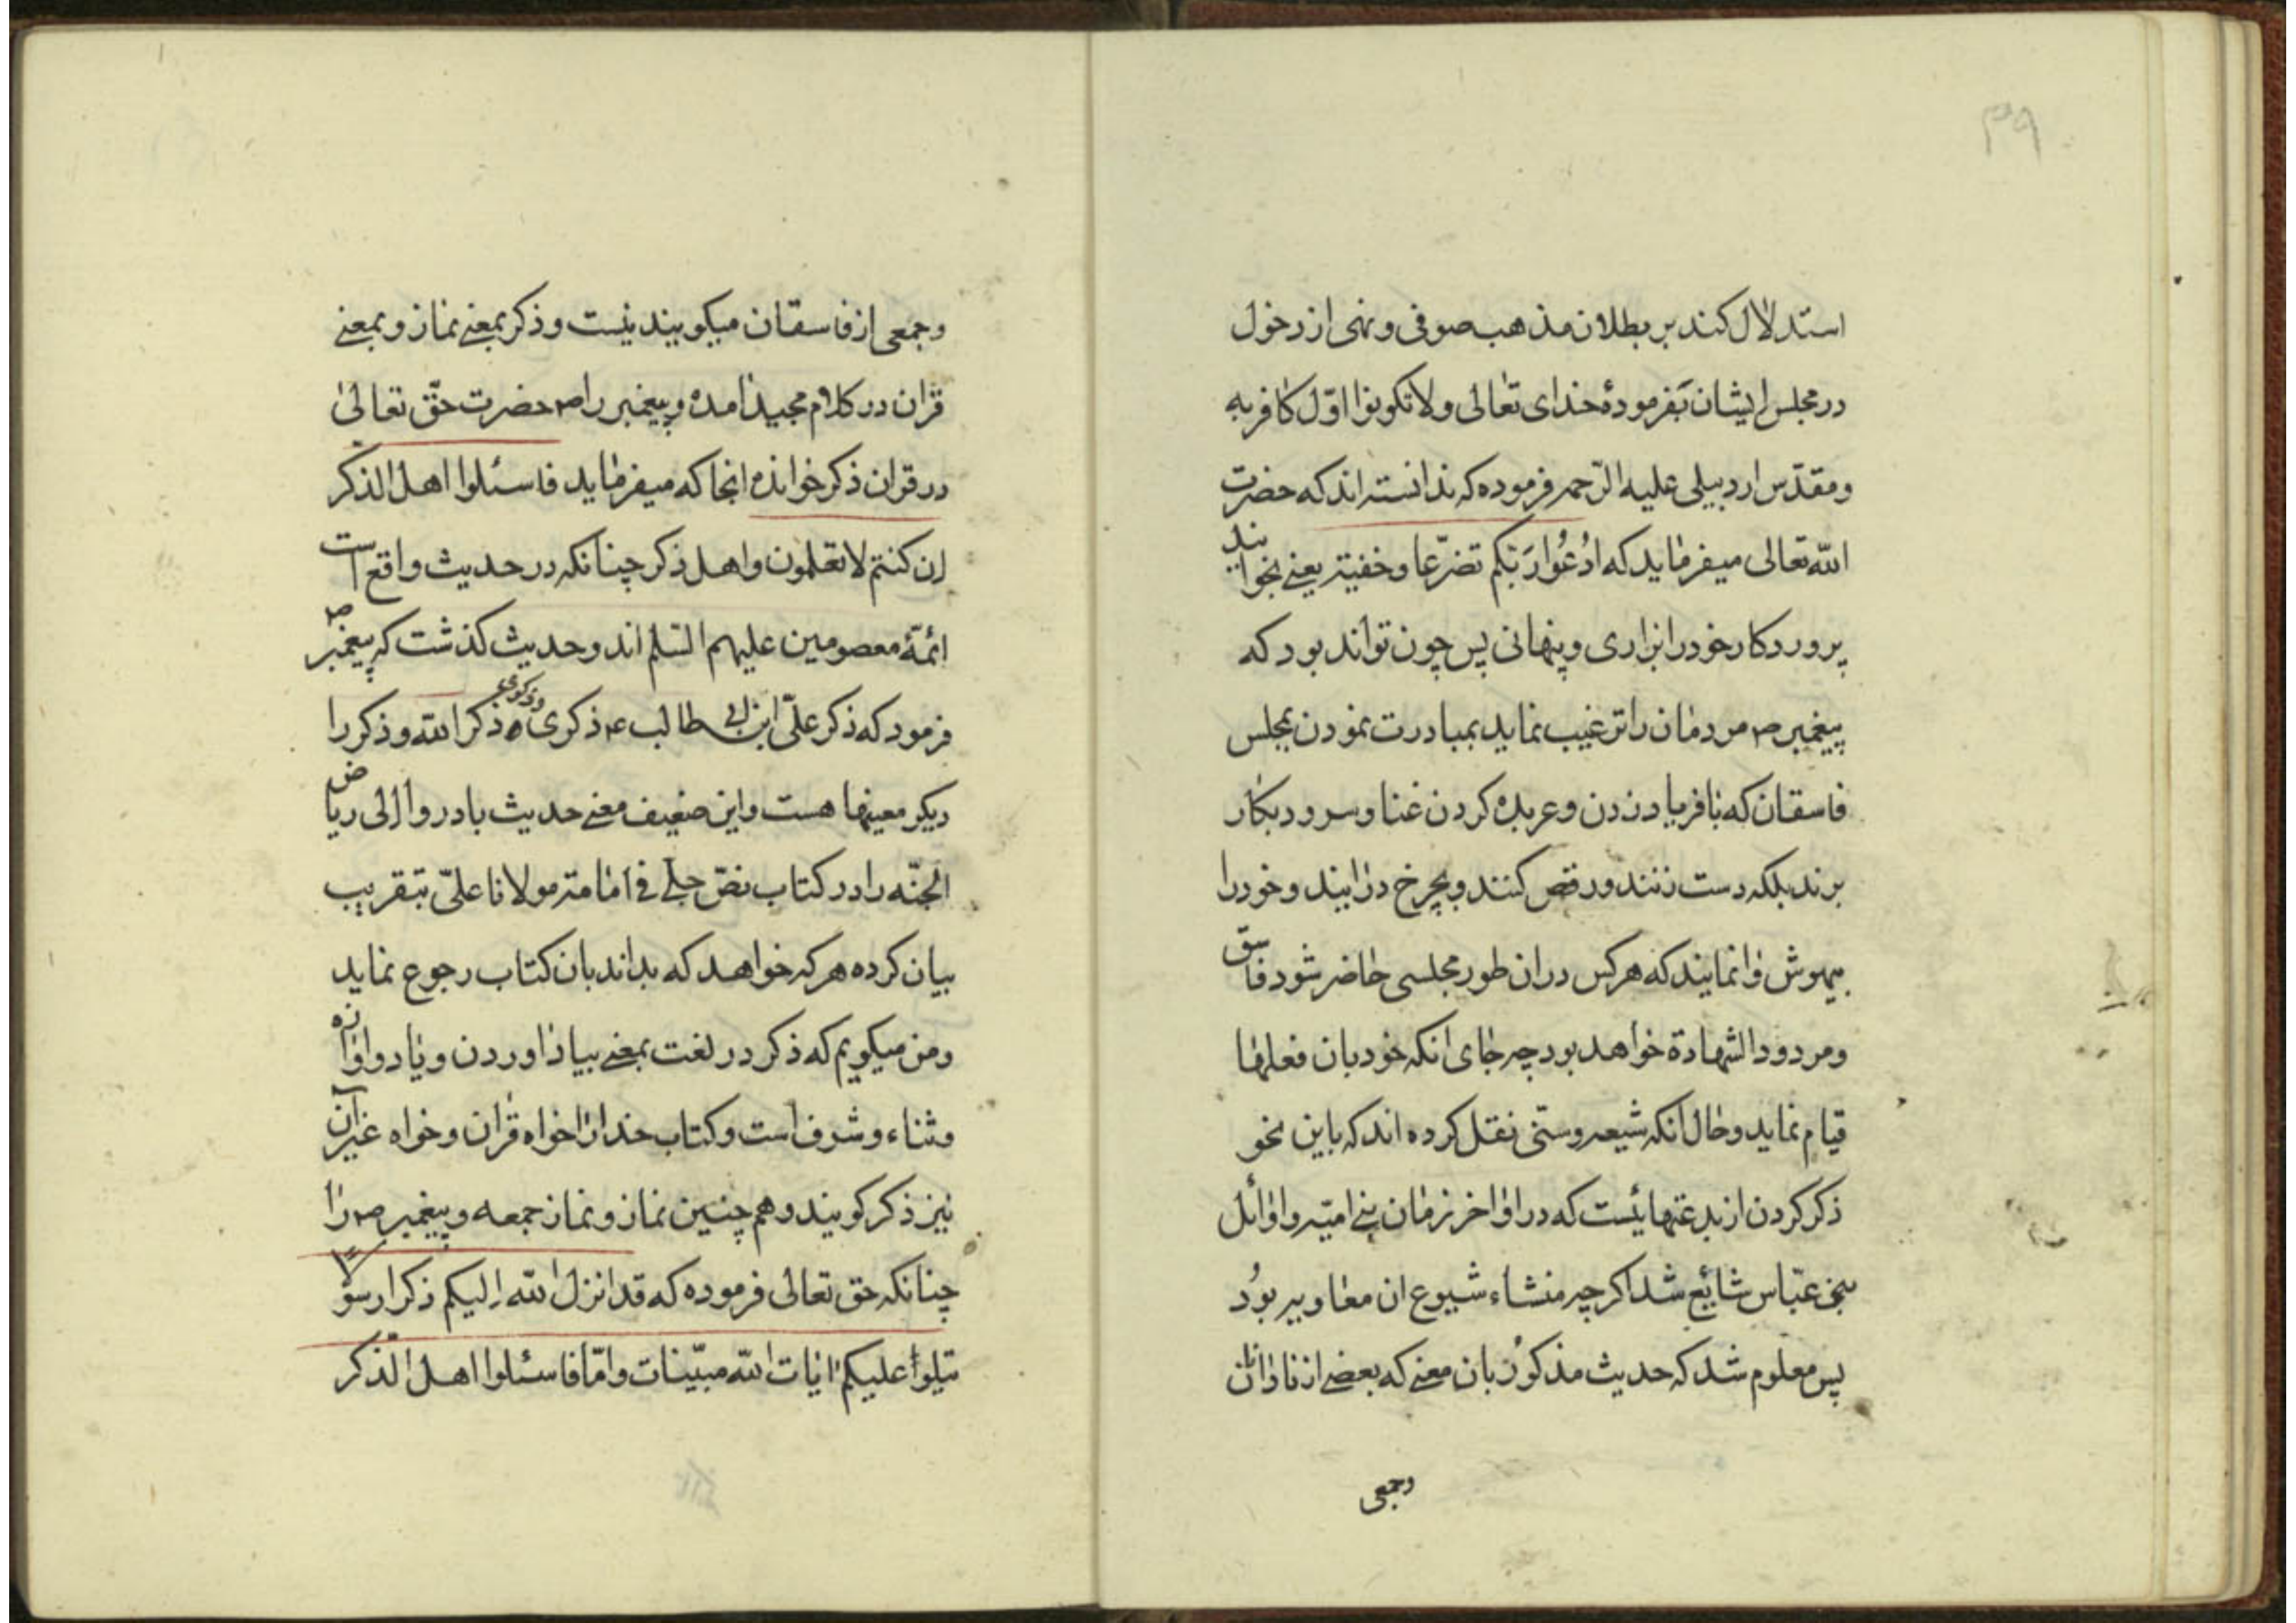 ۳۹
استدلال کند بر بطلان مذهب صوفی و نهی از دخول
در مجلس ایشان بفرمودهٔ خدای تعالی ولا تکونوا اوّل کافر به
و مقدّس اردبیلی علیه الرّحمه فرموده که ندانسته اند که حضرت
اللّه تعالی میفرماید که ادْعُوا رَبّکم تضرّعا و خفیة یعنے بخوانید
پروردکار خود را بزاری و پنهانی پس چون تواند بود که
پیغمبر ص مردمان را ترغیب نماید بمبادرت نمودن بمجلس
فاسقان که بافریاد زدن و عربده کردن غنا و سرود بکار
برند بلکه دست زنند و رقص کنند و بچرخ درایند و خود را
بیهوش وانمایند که هرکس دران طور مجلسی حاضر شود فاسق
و مردود الشهادة خواهد بود چه جای انکه خود بان فعلها
قیام نماید و حال انکه شیعه و سنّی نقل کرده اند که باین نحو
ذکر کردن از بدعتهائیست که در اواخر زمان بنے امیّه و اوائل
بنی عبّاس شایع شد اکرچه منشاء شیوع ان معاویه بود
پس معلوم شد که حدیث مذکور بان معنے که بعضے از نادانان
وجمعی
وجمعی از فاسقان میکویند نیست و ذکر بمعنے نماز و بمعنے
قران در کلام مجید امده و پیغمبر را ص حضرت حقّ تعالی
در قران ذکر خوانده انجا که میفرماید فاسئلوا اهل الذکر
ان کنتم لا تعلمون و اهل ذکر چنانکه در حدیث واقع است
ائمّهٔ معصومین علیهم السّلم اند و حدیث کذشت که پیغمبر ص
فرمود که ذکر علیّ ابن ابی طالب ع ذکری و ذکری ذکر اللّه و ذکر را
دیکر معنیها هست و این ضعیف معنے حدیث بادروا الی ریاض
الجنّه را در کتاب نصّ جلے فے امامة مولانا علیّ بتقریب
بیان کرده هرکه خواهد که بداند بان کتاب رجوع نماید
و من میکویم که ذکر در لغت بمعنے بیاد اوردن و یاد و اوازه
و ثناء و شرف است و کتاب خدا را خواه قران و خواه غیر آن
نیز ذکر کویند و هم چنین نماز و نماز جمعه و پیغمبر ص را
چنانکه حق تعالی فرموده که قد انزل اللّه الیکم ذکرا رسولا
یتلوا علیکم ایات اللّه مبیّنات و امّا فاسئلوا اهل الذکر